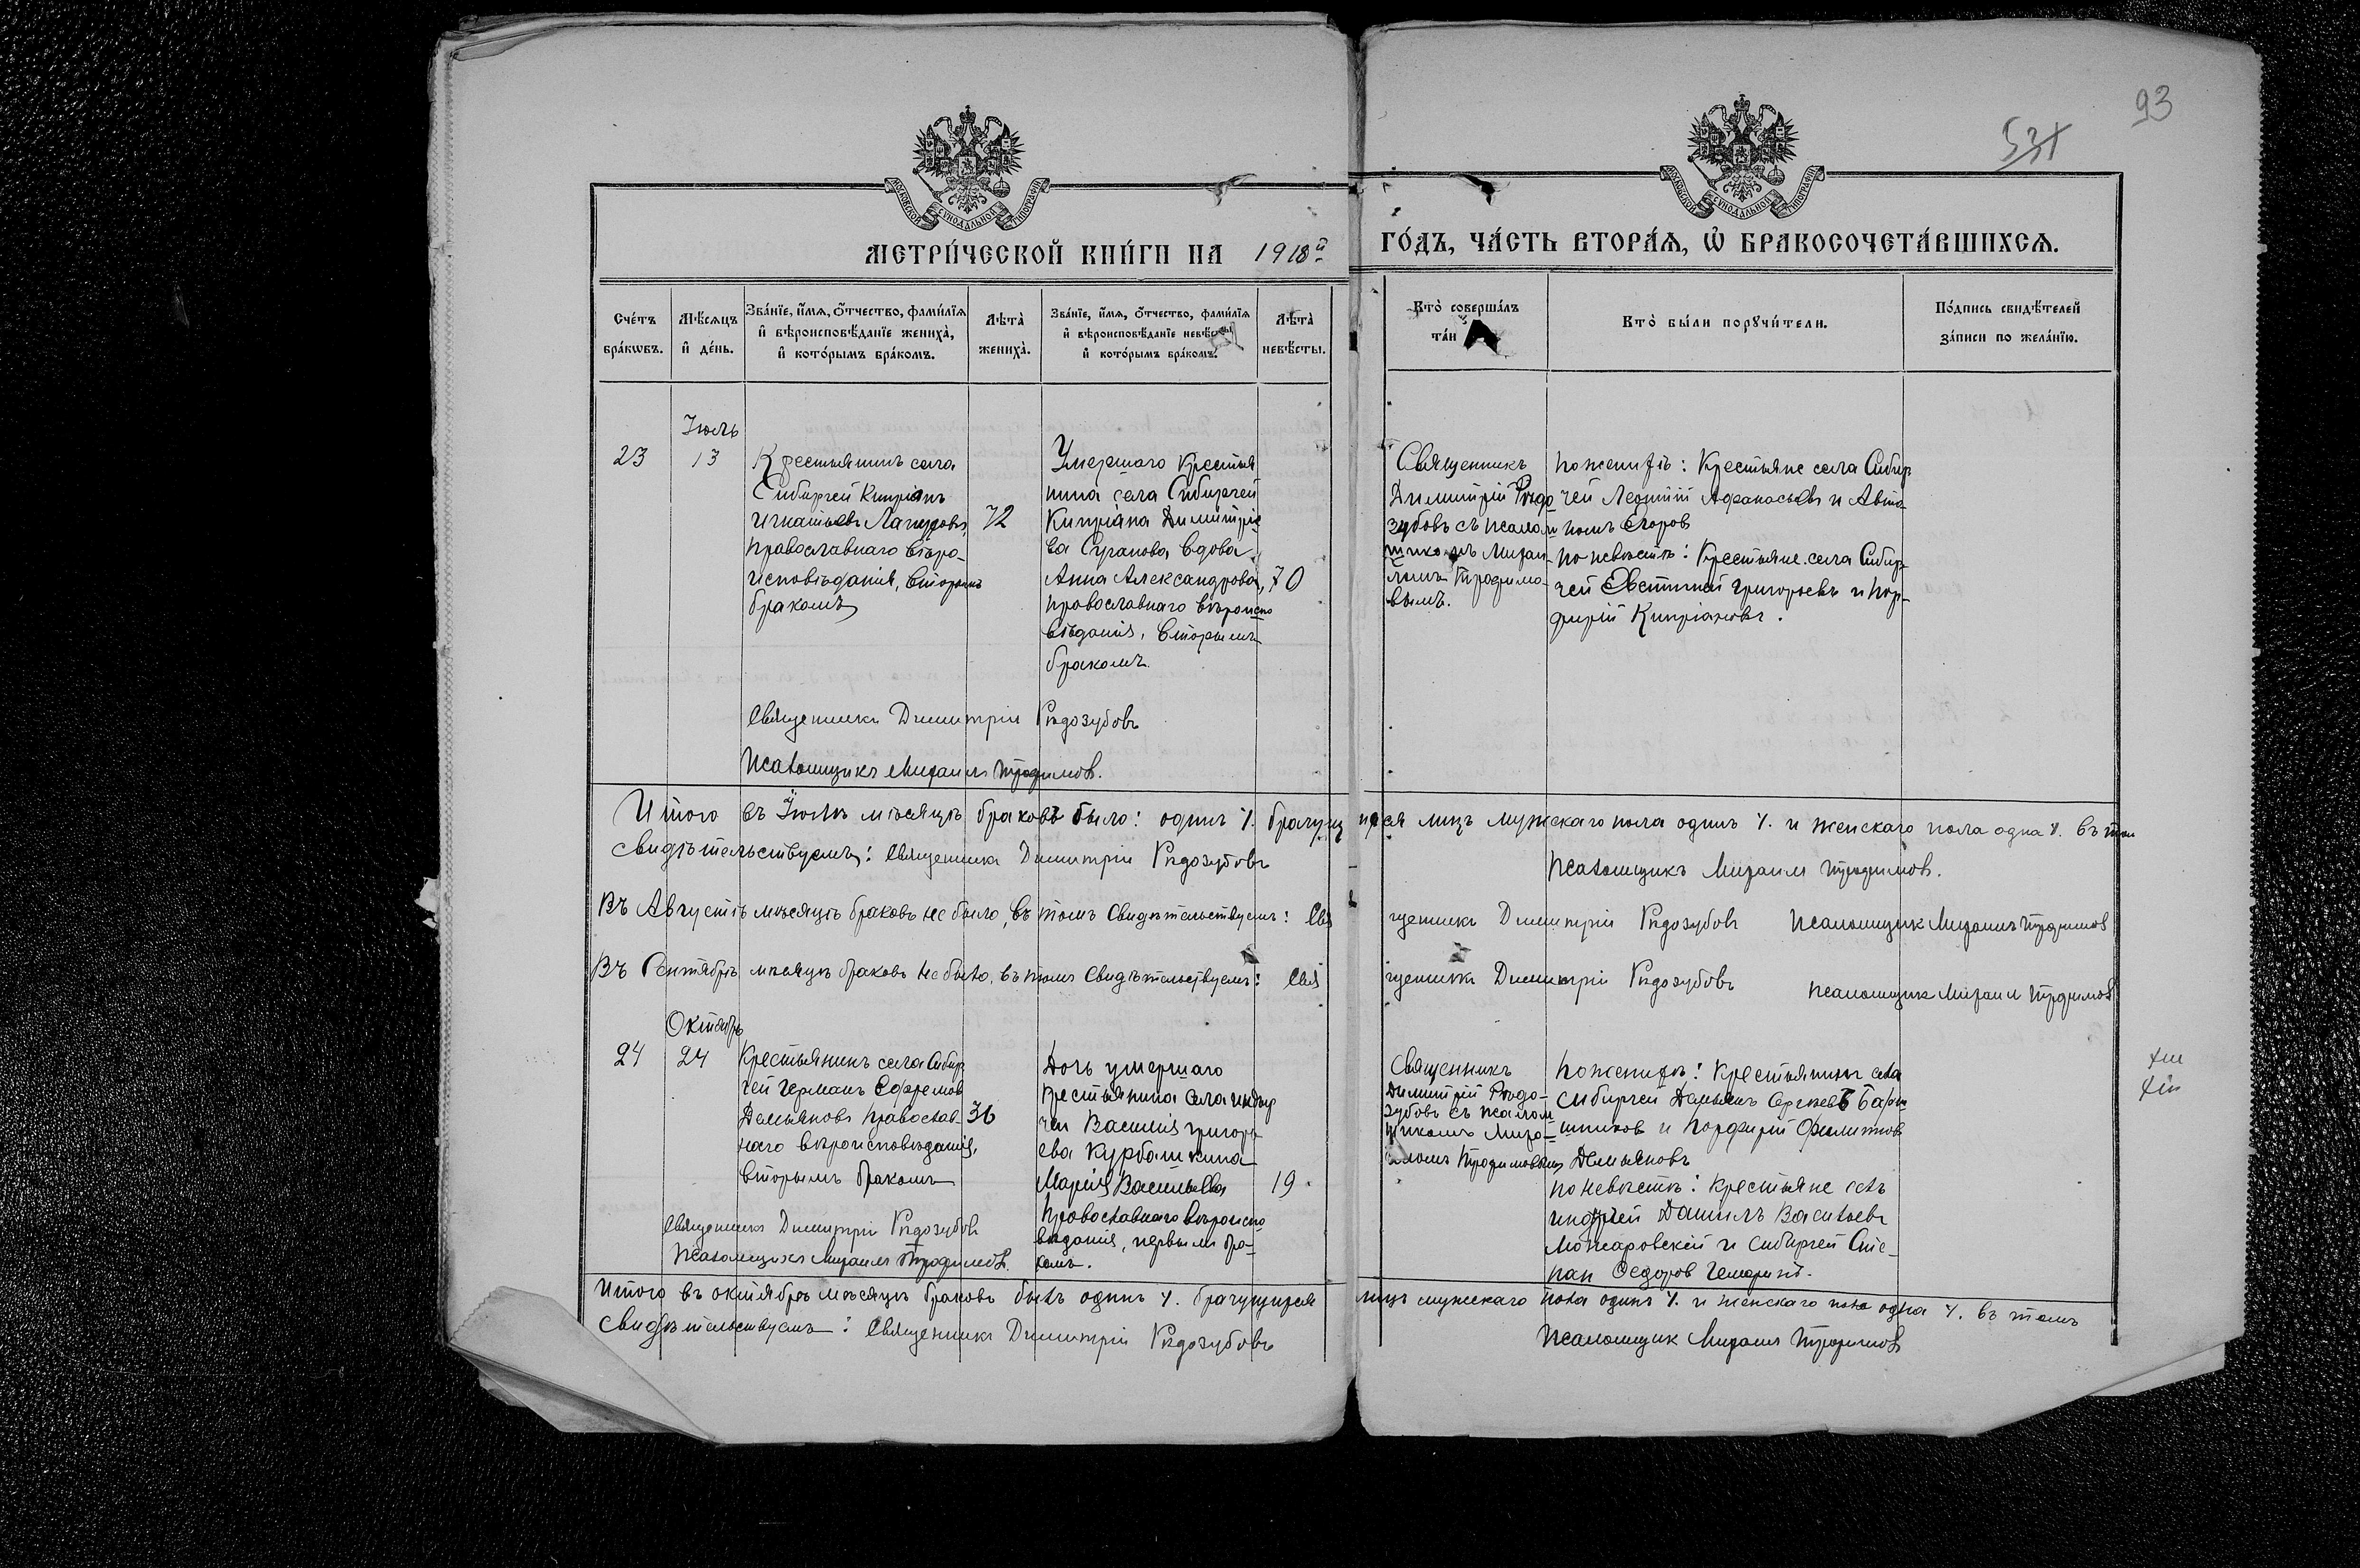 93
531
МОСКОВСКОЙ СѴНОДАЛЬНОЙ ТИПОГРАФІИ
МОСКОВСКОЙ СѴНОДАЛЬНОЙ ТИПОГРАФІИ
МЕТРИ́ЧЕСКОЙ КНИ́ГИ НА 1918й ГО́ДЪ, ЧА́СТЬ ВТОРА́Ѧ, Ѡ҆ БРАКОСОЧЕТА́ВШИХСѦ.
Сче́тъ
бра́кѡвъ.
Мѣ́сѧцъ
и҆ де́нь.
Зва́нїе, и҆́мѧ, ѻ҆́тчество, фами́лїѧ
и҆ вѣроисповѣ́данїе жениха̀,
и҆ кото́рымъ бра́комъ.
Лѣта̀
жениха̀.
Зва́нїе, и҆́мѧ, ѻ҆́тчество, фами́лїѧ
и҆ вѣроисповѣ́данїе невѣ́сты
и҆ кото́рымъ бра́комъ.
Лѣта̀
невѣ́сты.
Кто̀ соверша́лъ
та́и
Кто̀ бы́ли порꙋчи́тели.
По́дпись свидѣ́телей
за́писи по жела́нїю.
Іюль
23
13
Крестьянинъ села
Сибирчей Кипріянъ
Игнатьевъ Лапуровъ,
православнаго вѣро-
исповѣданія, вторымъ
бракомъ
72
Умершаго крестья
нина села Сибирчей
Кипріана Димитріе
ва Суранова вдова
Анна Александрова,
православнаго вѣроиспо
вѣданія, вторымъ
бракомъ.
70
Священникъ
Димитрій Рѣдо
зубовъ съ псалом
щикомъ Михаи-
ломъ Трофимо-
вымъ.
По женихѣ: Крестьяне села Сибир
чей Леонтій Афанасьевъ и Авто-
номъ Егоровъ
По невѣстѣ: Крестьяне села Сибир-
чей Евстигней Григорьевъ и Пор-
фирій Кипріановъ.
Священникъ Димитрій Рѣдозубовъ
Псаломщикъ Михаилъ Трофимовъ.
Итого въ Іюлѣ мѣсяцѣ браковъ было: одинъ 1. Брачущихся лицъ мужскаго пола одинъ 1. и женскаго пола одна 1. въ томъ
свидѣтельствуемъ: Священникъ Димитрій Рѣдозубовъ
Псаломщикъ Михаилъ Трофимовъ.
Въ Августѣ мѣсяцѣ браковъ не было, въ томъ свидѣтельствуемъ: Священникъ Димитрій Рѣдозубовъ Псаломщик Михаилъ Трофимов
Въ Сентябрѣ мѣсяцѣ браковъ не было, въ томъ свидѣтельствуемъ: Священникъ Димитрій Рѣдозубовъ Псаломщик Михаил Трофимов
Октябрь
24
24
Крестьянинъ села Сибир
чей Германъ Ефремов
Демьяновъ православ-
наго вѣроисповѣданія,
вторымъ бракомъ
36
Дочь умершаго
крестьянина села
чей Василія Григорь
ева Курбашкина
Марія Васильева
православнаго вѣроиспо
вѣданія, первымъ бра-
комъ.
19
Священникъ
Димитрій Рѣдо-
зубовъ съ псалом
щикомъ Миха-
иломъ Трофимовымъ
По женихѣ: Крестьянинъ села
Сибирчей Демьянъ Сергѣевъ
и Порфирій Филиппов
Демьяновъ
По невѣстѣ: Крестьяне селъ
Индырчей Даниилъ Васильевъ
Можаровскій и Сибирчей Сте-
пан Федоров
Священникъ Димитрій Рѣдозубовъ
Псаломщикъ Михаилъ Трофимовъ.
Итого въ октябрѣ мѣсяцѣ браковъ былъ одинъ 1. Брачущихся лицъ мужскаго пола одинъ 1. и женскаго пола одна 1. въ томъ
свидѣтельствуемъ: Священникъ Димитрій Рѣдозубовъ
Псаломщик Михаилъ Трофимовъ